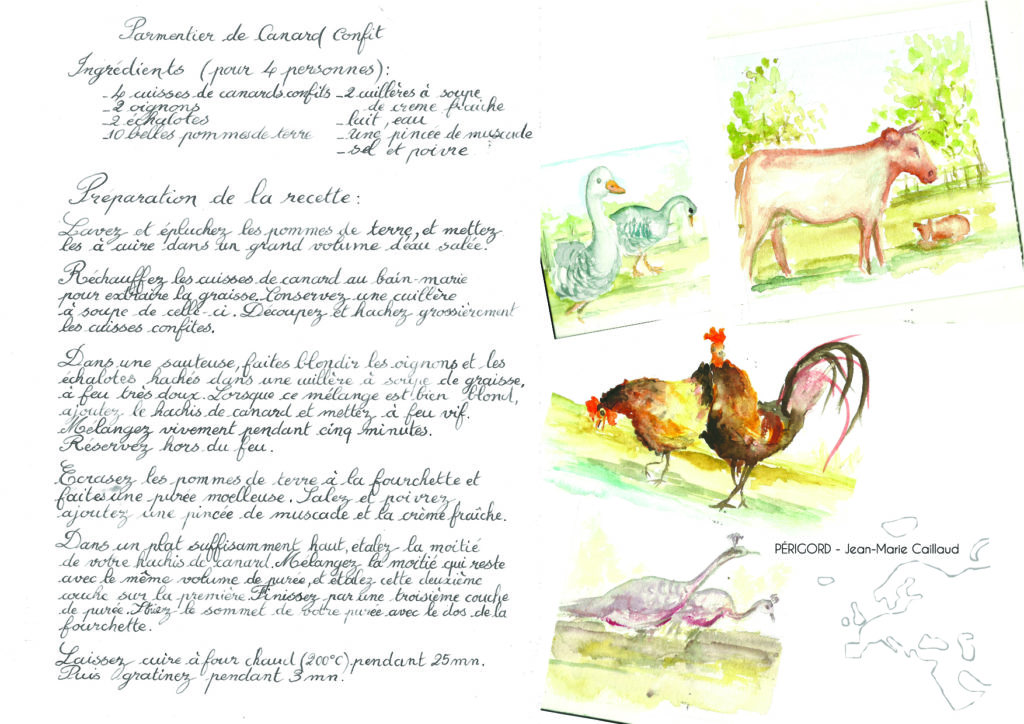 Parmentier de Canard Confit
Ingrédients (pour 4 personnes):
-4 cuisses de canards confits
-2 oignons
-2 échalotes
-10 belles pommes de terre
-2 cuillères à soupe
de creme fraîche
-lait, eau
-une pincée de muscade
-sel et poivre
Préparation de la recette:
Lavez et épluchez les pommes de terre, et mettez
les à cuire dans un grand volume d'eau salée.
Réchauffez les cuisses de canard au bain-marie
pour extraire la graisse. Conservez une cuillère
à soupe de celle-ci. Découpez et hachez grossièrement
les cuisses confites.
Dans une sauteuse, faites blondir les oignons et les
échalotes hachés dans une cuillère à soupe de graisse,
à feu très doux. Lorsque ce mélange est bien blond,
ajoutez le hachis de canard et mettez à feu vif.
Mélangez vivement pendant cinq minutes.
Réservez hors du feu.
Ecrasez les pommes de terre à la fourchette et
faites une purée moelleuse. Salez et poivrez,
ajoutez une pincée de muscade et la crème fraîche.
Dans un plat suffisamment haut, etalez la moitié
de votre hachis de canard. Mélangez la moitié qui reste
avec le même volume de purée, et étalez cette deuxième
couche sur la première. Finissez par une troisième couche
de purée. Striez le sommet de votre purée avec le dos de la
fourchette.
Laissez cuire à four chaud (200°C) pendant 25 mn.
Puis gratinez pendant 3 mn.
PÉRIGORD - Jean-Marie Caillaud